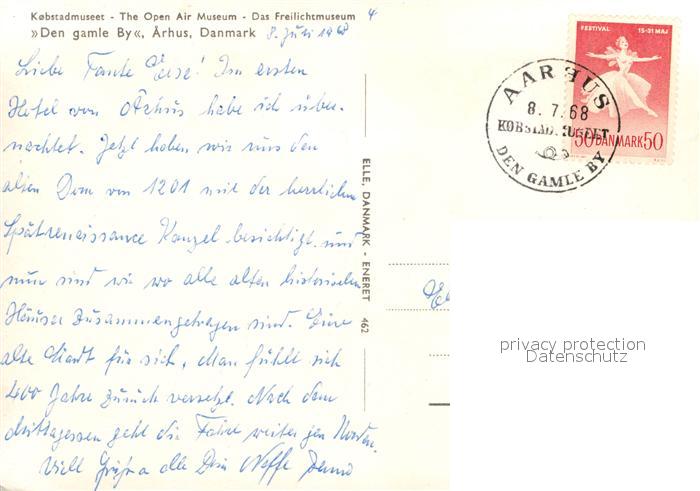 Købstadmuseet - The Open Air Museum - Das Freilichtmuseum 4
»Den gamle By«, Århus, Danmark 8. Juli 1968
Liebe Tante Else! Im ersten
Hotel von Århus habe ich über-
nachtet. Jetzt haben wir uns den
alten Dom von 1201 mit der herrlichen
Spätrenaissance Kanzel besichtigt und
nun sind wir wo alle alten historischen
Häuser zusammengetragen sind. Eine
alte Stadt für sich. Man fühlt sich
400 Jahre zurück versetzt. Nach dem
Mittagessen geht die Fahrt weiter gen Norden.
Viele Grüße alle Dein Neffe
ELLE, DANMARK - ENERET 462
FESTIVAL 15-31 MAJ
50 DANMARK 50
AARHUS
8.7.68
KØBSTADMUSEET
DEN GAMLE BY
privacy protection
Datenschutz